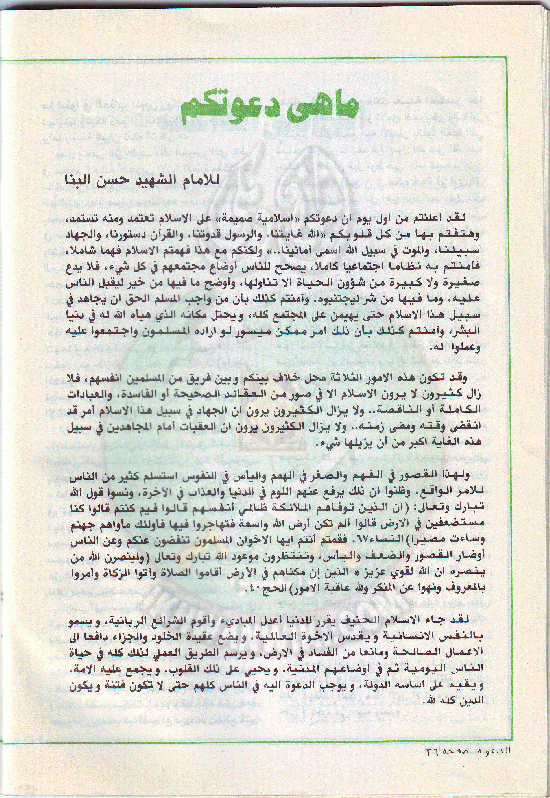 ماهى دعوتكم
للامام الشهيد حسن البنا
لقد اعلنتم من اول يوم ان دعوتكم «اسلامية صميمة» على الاسلام تعتمد ومنه تستمد،
وهتفتم بها من كل قلوبكم «الله غايتنا، والرسول قدوتنا، والقرآن دستورنا، والجهاد
سبيلنا، والموت في سبيل الله اسمى أمانينا..» ولكنكم مع هذا فهمتم الاسلام فهما شاملا،
فآمنتم به نظاما اجتماعيا كاملا، يصحح للناس أوضاع مجتمعهم في كل شيء، فلا يدع
صغيرة ولا كبيرة من شؤون الحياة الا تناولها، وأوضح ما فيها من خير ليقبل الناس
عليه، وما فيها من شر ليجتنبوه. وآمنتم كذلك بأن من واجب المسلم الحق ان يجاهد في
سبيل هذا الاسلام حتى يهيمن على المجتمع كله، ويحتل مكانه الذي هيأه الله له في دنيا
البشر، وآمنتم كذلك بأن ذلك امر ممكن ميسور لو اراده المسلمون واجتمعوا عليه
وعملوا له.
وقد تكون هذه الامور الثلاثة محل خلاف بينكم وبين فريق من المسلمين انفسهم، فلا
زال كثيرون لا يرون الاسلام الا في صور من العقائد الصحيحة أو الفاسدة، والعبادات
الكاملة أو الناقصة.. ولا يزال الكثيرون يرون ان الجهاد في سبيل هذا الاسلام أمر قد
انقضى وقته ومضى زمنه.. ولا يزال الكثيرون يرون ان العقبات أمام المجاهدين في سبيل
هذه الغاية اكبر من أن يزيلها شيء.
ولهذا القصور في الفهم والصغر في الهمم واليأس في النفوس استسلم كثير من الناس
للامر الواقع، وظنوا ان ذلك يرفع عنهم اللوم في الدنيا والعذاب في الآخرة، ونسوا قول الله
تبارك وتعالى: (ان الذين توفاهم الملائكة ظالمي أنفسهم قالوا فيم كنتم قالوا كنا
مستضعفين في الارض قالوا ألم تكن أرض الله واسعة فتهاجروا فيها فأولئك مأواهم جهنم
وساءت مصيرا) النساء٩٧. فقمتم أنتم ايها الاخوان المسلمون تنفضون عنكم وعن الناس
أوضار القصور والضعف واليأس، وتنتظرون موعود الله تبارك وتعالى (ولينصرن الله من
ينصره ان الله لقوي عزيز * الذين إن مكناهم في الارض أقاموا الصلاة وآتوا الزكاة وأمروا
بالمعروف ونهوا عن المنكر ولله عاقبة الامور) الحج ٤٠.
لقد جاء الاسلام الحنيف يقرر للدنيا أعدل المبادىء وأقوم الشرائع الربانية، ويسمو
بالنفس الانسانية ويقدس الأخوة العالمية. ويضع عقيدة الخلود والجزاء دافعا الى
الاعمال الصالحة ومانعا من الفساد في الارض. ويرسم الطريق العملي لذلك كله في حياة
الناس اليومية ثم في اوضاعهم المدنية. ويحيي على ذلك القلوب. ويجمع عليه الامة.
ويقيم على اساسه الدولة، ويوجب الدعوة اليه في الناس كلهم حتى لا تكون فتنة ويكون
الدين كله لله.